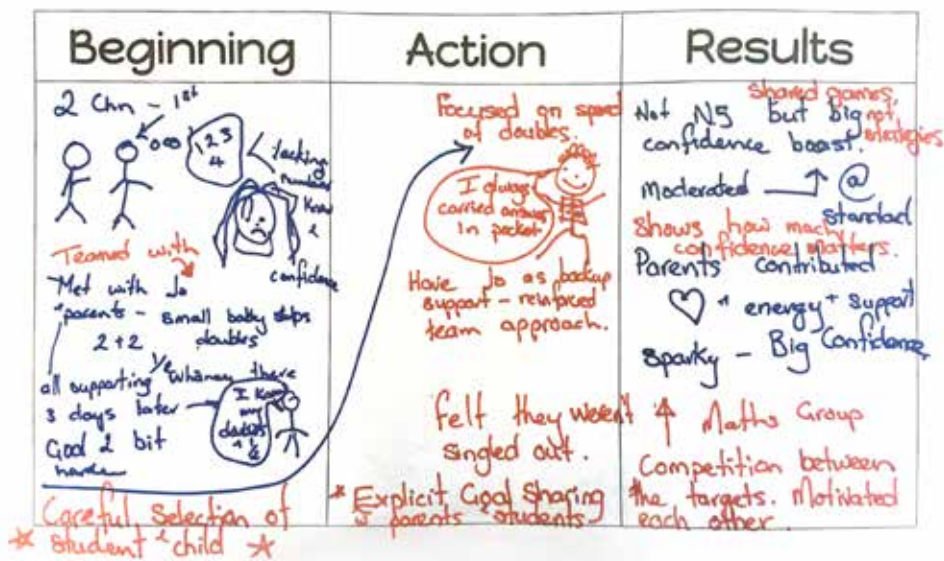 Beginning
2 Chn - 1st
1 2 3
4
lacking
number
Know
&
confidence
Teamed with
Met with Jo
parents - small baby steps
2 + 2 doubles
all supporting 1/2 whānau there
3 days later
I know
my
doubles
+ 1/2
Goal 2 bit
harder
Careful Selection of
* student & child *
Action
Focused on speed
of doubles.
I always
carried answers
in pocket
Have Jo as backup
support - reinforced
team approach.
Felt they weren't
singled out.
* Explicit Goal Sharing
parents students
Results
shared games,
not
strategies
Not N5 but big
confidence boost.
Moderated → @
standard
Shows how much
confidence matters.
Parents contributed
♡ + energy + support
Sparky - Big Confidence
↑ Maths Group
Competition between
the targets. Motivated
each other.